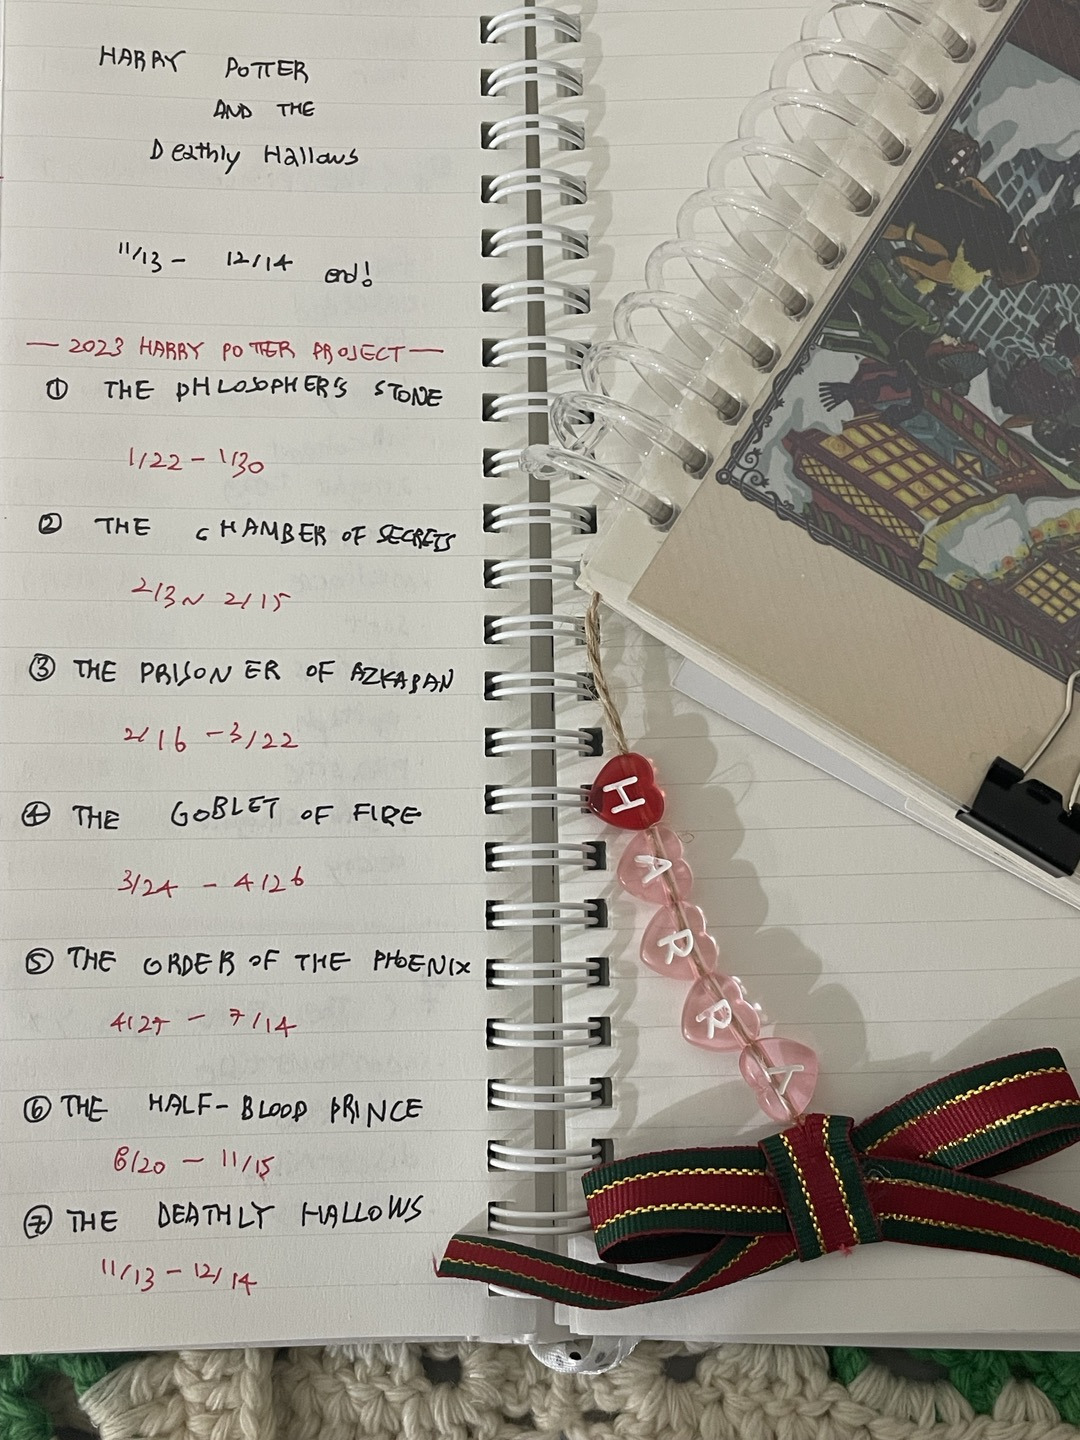 HARRY POTTER
AND THE
Deathly Hallows
11/13 - 12/14 end!
— 2023 HARRY POTTER PROJECT —
① THE PHLOSOPHER'S STONE
1/22 - 1/30
② THE CHAMBER OF SECRETS
2/3 ~ 2/15
③ THE PRISONER OF AZKABAN
2/16 - 3/22
④ THE GOBLET OF FIRE
3/24 - 4/26
⑤ THE ORDER OF THE PHOENIX
4/27 - 7/14
⑥ THE HALF-BLOOD PRINCE
8/20 - 11/15
⑦ THE DEATHLY HALLOWS
11/13 - 12/14
HARRY